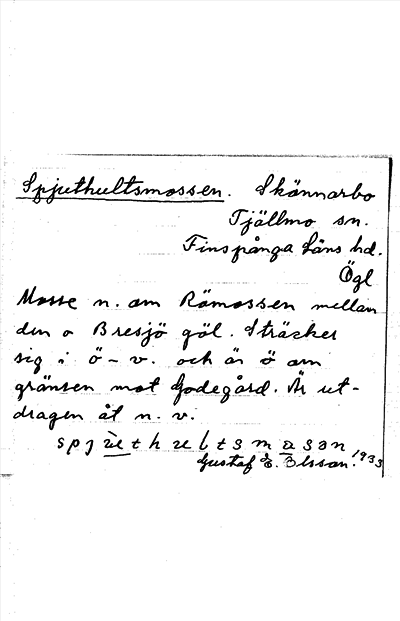 Spjuthultsmossen. Skännarbo
Tjällmo sn.
Finspånga läns hd.
Ögl
Mosse n. om Römossen mellan
den o Bresjö göl. Sträcker
sig i ö – v. och är ö om
gränsen mot Godegård. Är ut-
dragen åt n. v.
Gustaf E. Olsson. 1933